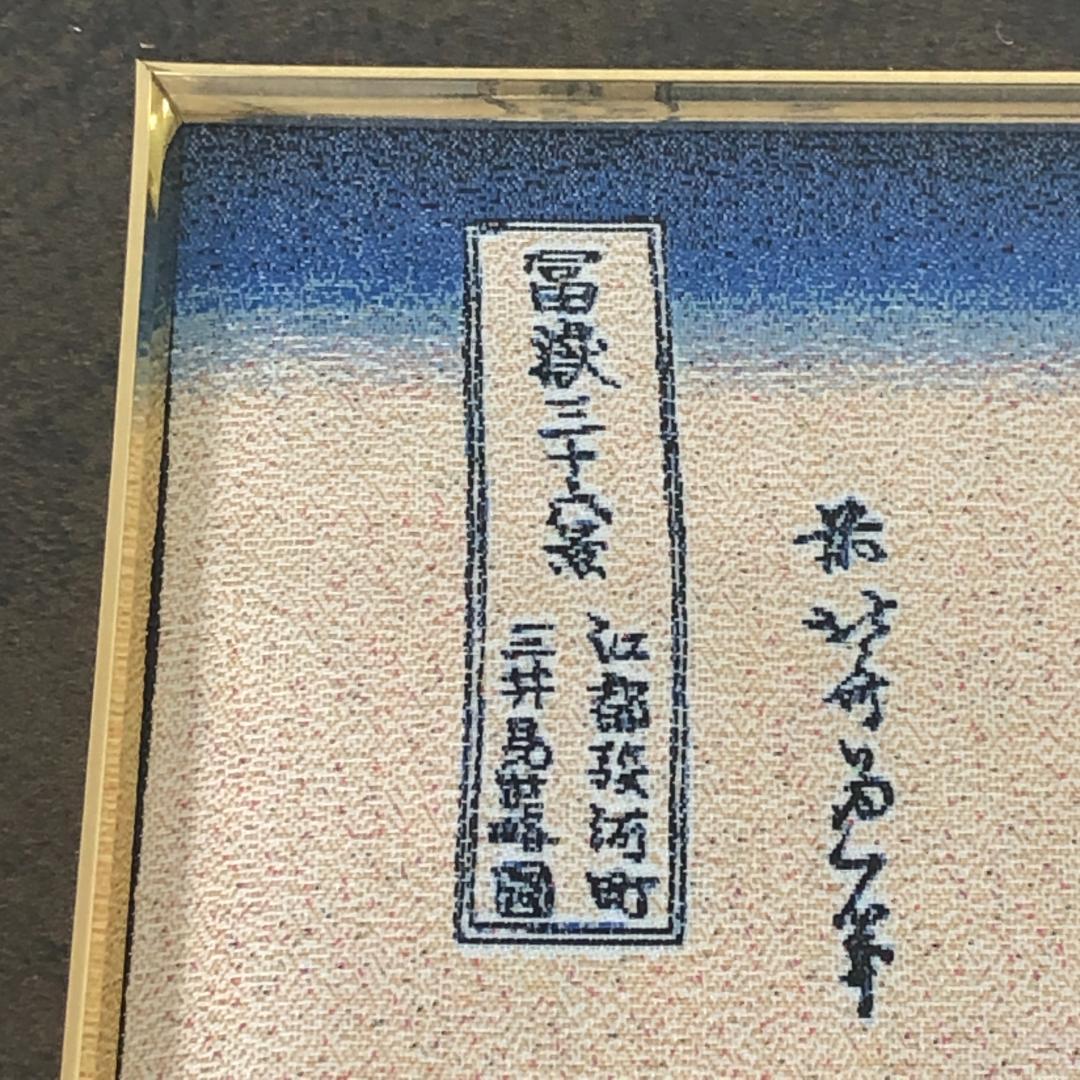 冨嶽三十六景
江都駿河町
三井見世略圖
前北斎為一筆